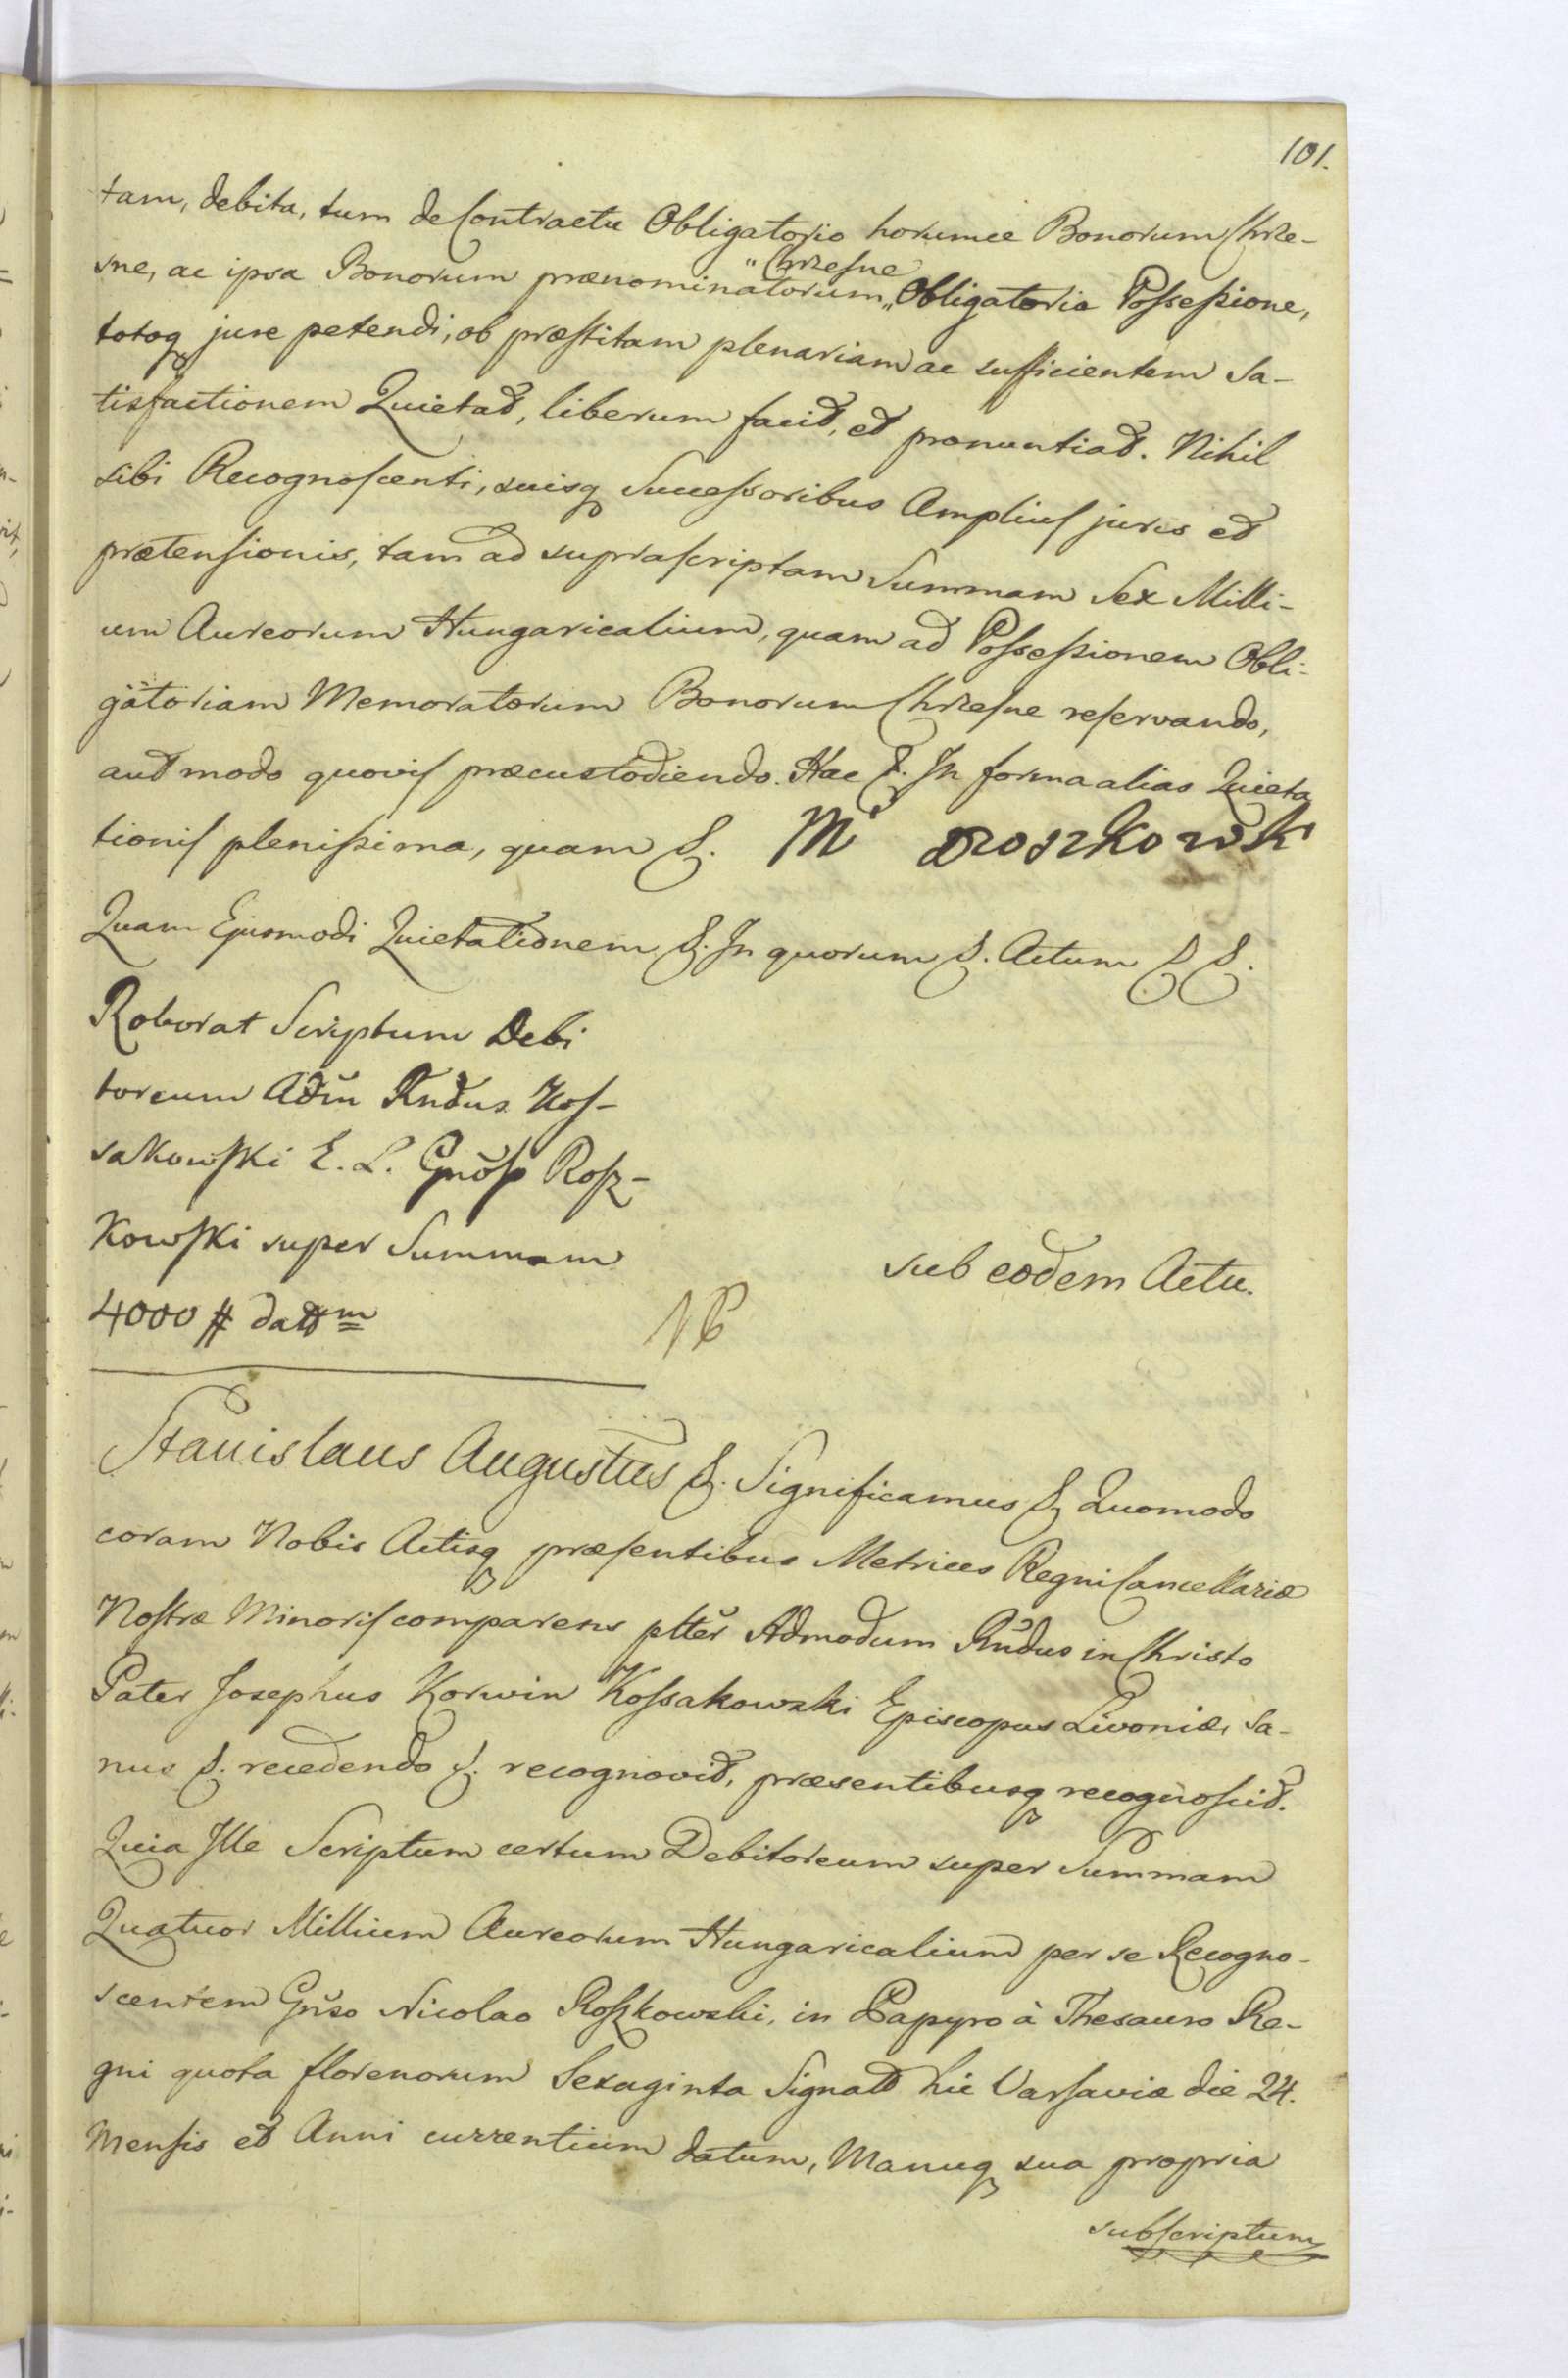 101.
tam, debita, tum de Contractu Obligatorio horumce Bonorum Chrze-
sne, ac ipsa Bonorum prænominatorum „Chrzesne„ Obligatoria Possessione,
totoq jure petendi, ob præstitam plenariam ac sufficientem Sa-
tisfactionem Quietat, liberum facit, et pronuntiat. Nihil
sibi Recognoscenti, suisq Successoribus Amplius juris et
prætensionis, tam ad suprascriptam Summam Sex Milli-
um Aureorum Hungaricalium, quam ad Possessionem Obli-
gatoriam Memoratorum Bonorum Chrzesne reservando,
aut modo quovis præcustodiendo. Hac &. In forma alias Quieta
tionis plenissima, quam &. M Roszkowski
Quam Ejusmodi Quietationem &. In quorum &. Actum & &.
Roborat Scriptum Debi
toreum Adm̃ Rñdus Kos-
sakowski E. L. Gnõso Rosz-
kowski super Summam
4000 # datt m
sub eodem Actu.
Stanislaus Augustus &. Significamus & Quomodo
coram Nobis Actisq præsentibus Metrices Regni Cancellariæ
Nostræ Minoris comparens pltter Admodum Rñdus in Christo
Pater Josephus Korwin Kossakowski Episcopus Livoniæ, sa-
nus &. recedendo &. recognovit, præsentibusq recognoscit.
Quia Ille Scriptum certum Debitoreum super Summam
Quatuor Millium Aureorum Hungaricalium per se Recogno-
scentem Gñso Nicolao Roszkowski, in Papyro à Thesauro Re-
gni quota florenorum Sexaginta Signatt hic Varsaviæ die 24.
Mensis et Anni currentium datum, Manuq sua propria
subscriptum